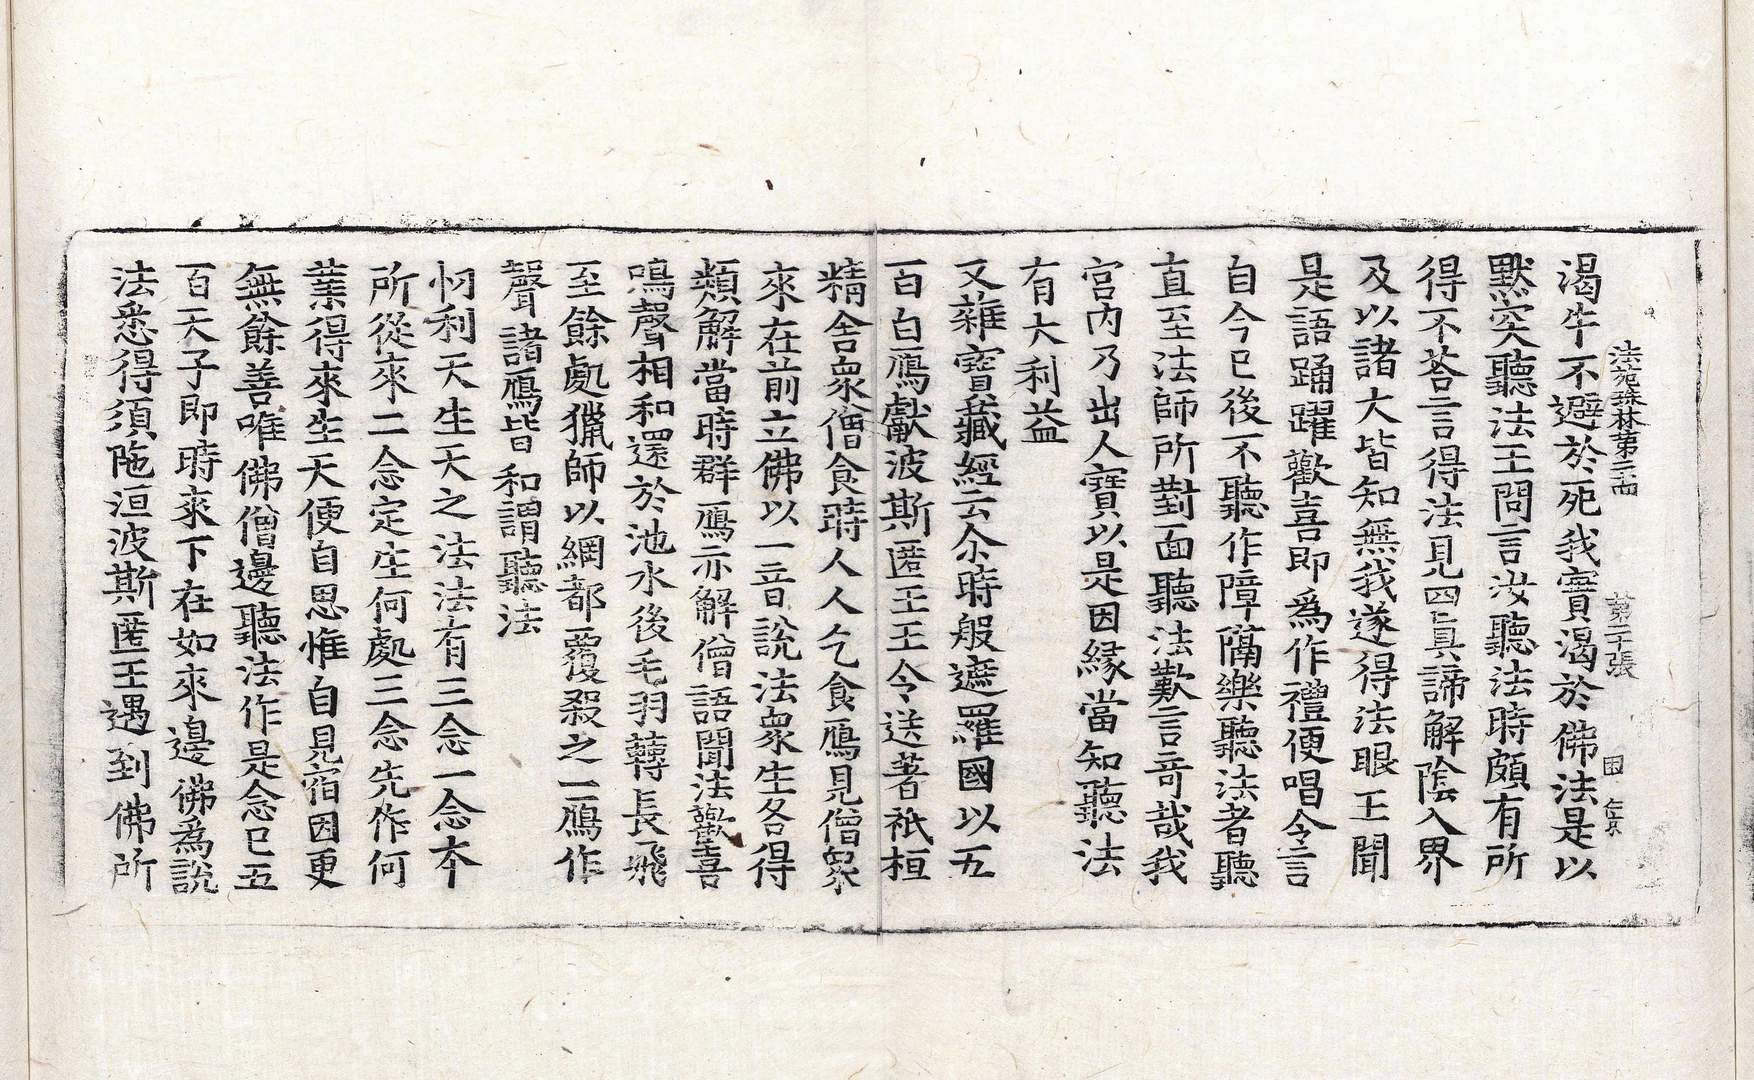 法苑珠林第二十四 第二十張 困 仁其
渴牛不避於死我實渴於佛法是以
默突聽法王問言汝聽法時頗有所
得不荅言得法見四眞諦解陰入界
及以諸大皆知無我遂得法眼王聞
是語踊躍歡喜即爲作禮便唱令言
自今已後不聽作障隔樂聽法者聽
直至法師所對面聽法歎言奇哉我
宮內乃出人寶以是因緣當知聽法
有大利益
又雜寶藏經云尒時般遮羅國以五
百白鴈獻波斯匿王王令送著祇桓
精舍衆僧食時人人乞食鴈見僧衆
來在前立佛以一音說法衆生各得
類解當時群鴈亦解僧語聞法歡喜
鳴聲相和還於池水後毛羽轉長飛
至餘處獵師以網都覆殺之一鴈作
聲諸鴈皆和謂聽法
忉利天生天之法法有三念一念本
所從來二念定生何處三念先作何
業得來生天便自思惟自見宿因更
無餘善唯佛僧邊聽法作是念已五
百天子即時來下在如來邊佛爲說
法悉得須陁洹波斯匿王遇到佛所